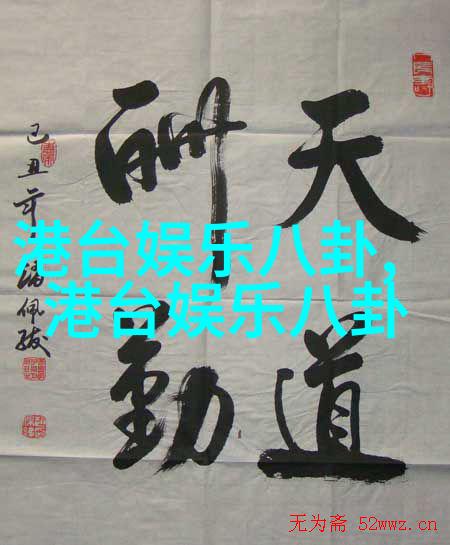 天道
酬勤
己丑年 佩
港台娱乐八卦,
港台娱乐八卦
无为斋 52wwz.cn